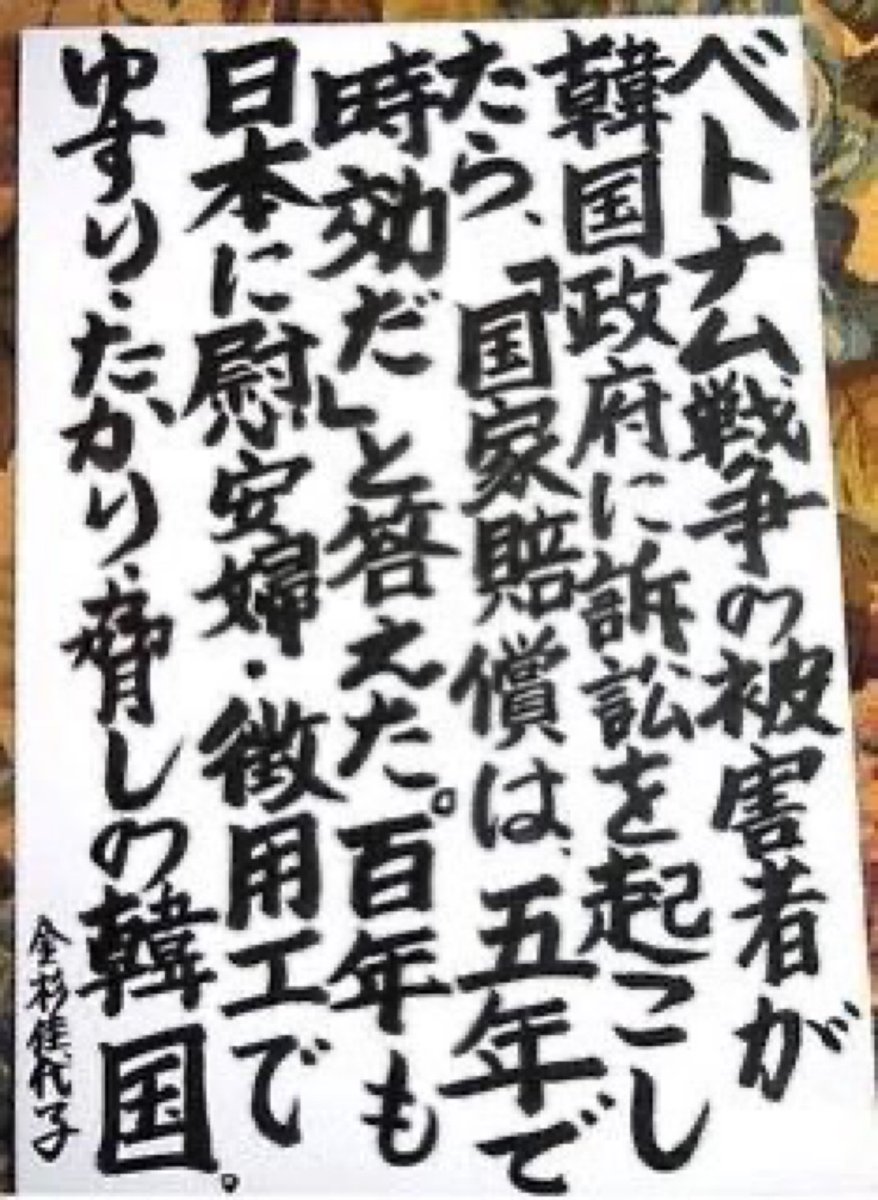 ベトナム戦争の被害者が
韓国政府に訴訟を起こし
たら、「国家賠償は、五年で
時効だ」と答えた。百年も
日本に慰安婦・徴用工で
ゆすり、たかり、脅しの韓国。
金杉佳代子